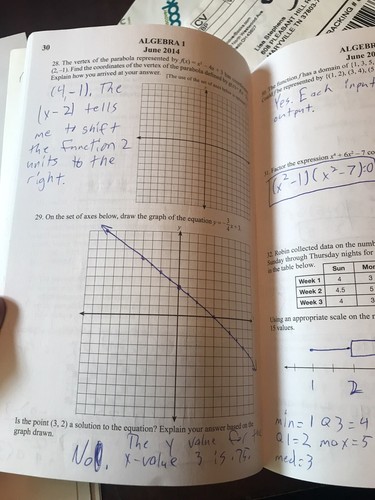 30
ALGEBRA 1
June 2014
28. The vertex of the parabola represented by f(x) = x² − 4x + 3 has coordinates
(2, −1). Find the coordinates of the vertex of the parabola defined by
Explain how you arrived at your answer.
[The use of the set of axes below is
(4,-1). The
(x-2) tells
me to shift
the function 2
units to the
right.
29. On the set of axes below, draw the graph of the equation y = −3/4x + 3.
y
x
Is the point (3, 2) a solution to the equation? Explain your answer based on the
graph drawn.
No. The y value for
x-value 3 is .75.
ALGEBR
June 20
The function f has a domain of {1, 3, 5,
be represented by {(1, 2), (3, 4), (5
Yes. Each input
output.
Factor the expression x⁴ + 6x² − 7 co
(x²-1)(x²-7):0
32. Robin collected data on the numb
Sunday through Thursday nights for
in the table below.
Sun Mon
Week 1 4 3
Week 2 4.5 5
Week 3 4 3
Using an appropriate scale on the n
15 values.
1 2
min=1 Q3=4
Q1=2 max=5
med=3
Lisa Brashear
PLEASANT HILL
MARYVILLE TN 37803-
TRACKING #
book